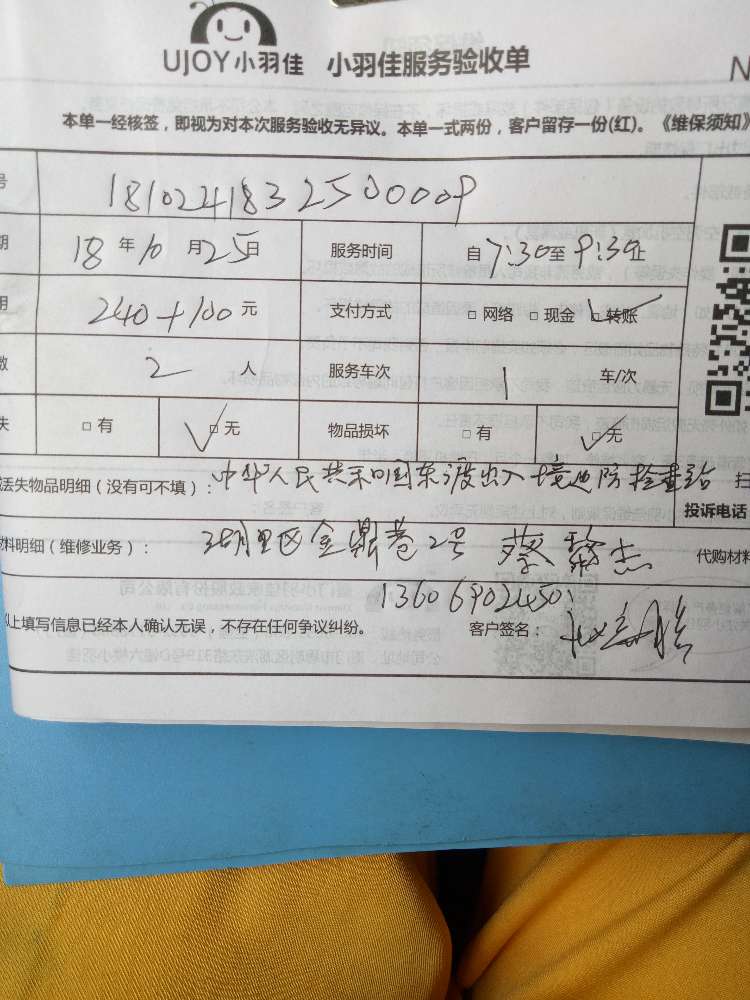 UJOY小羽佳 小羽佳服务验收单
N
本单一经核签，即视为对本次服务验收无异议。本单一式两份，客户留存一份(红)。《维保须知》
号 181024183250000P
期 18年10月25日 服务时间 自7:30至9:30止
用 240+100元 支付方式 □网络 □现金 □转账
数 2人 服务车次 1车/次
失 □有 □无 物品损坏 □有 □无
丢失物品明细（没有可不填）：中华人民共和国东渡出入境边防检查站 扫
投诉电话
料明细（维修业务）：湖里区金鼎巷2号 蔡黎杰 代购材料
13606902450
以上填写信息已经本人确认无误，不存在任何争议纠纷。 客户签名：